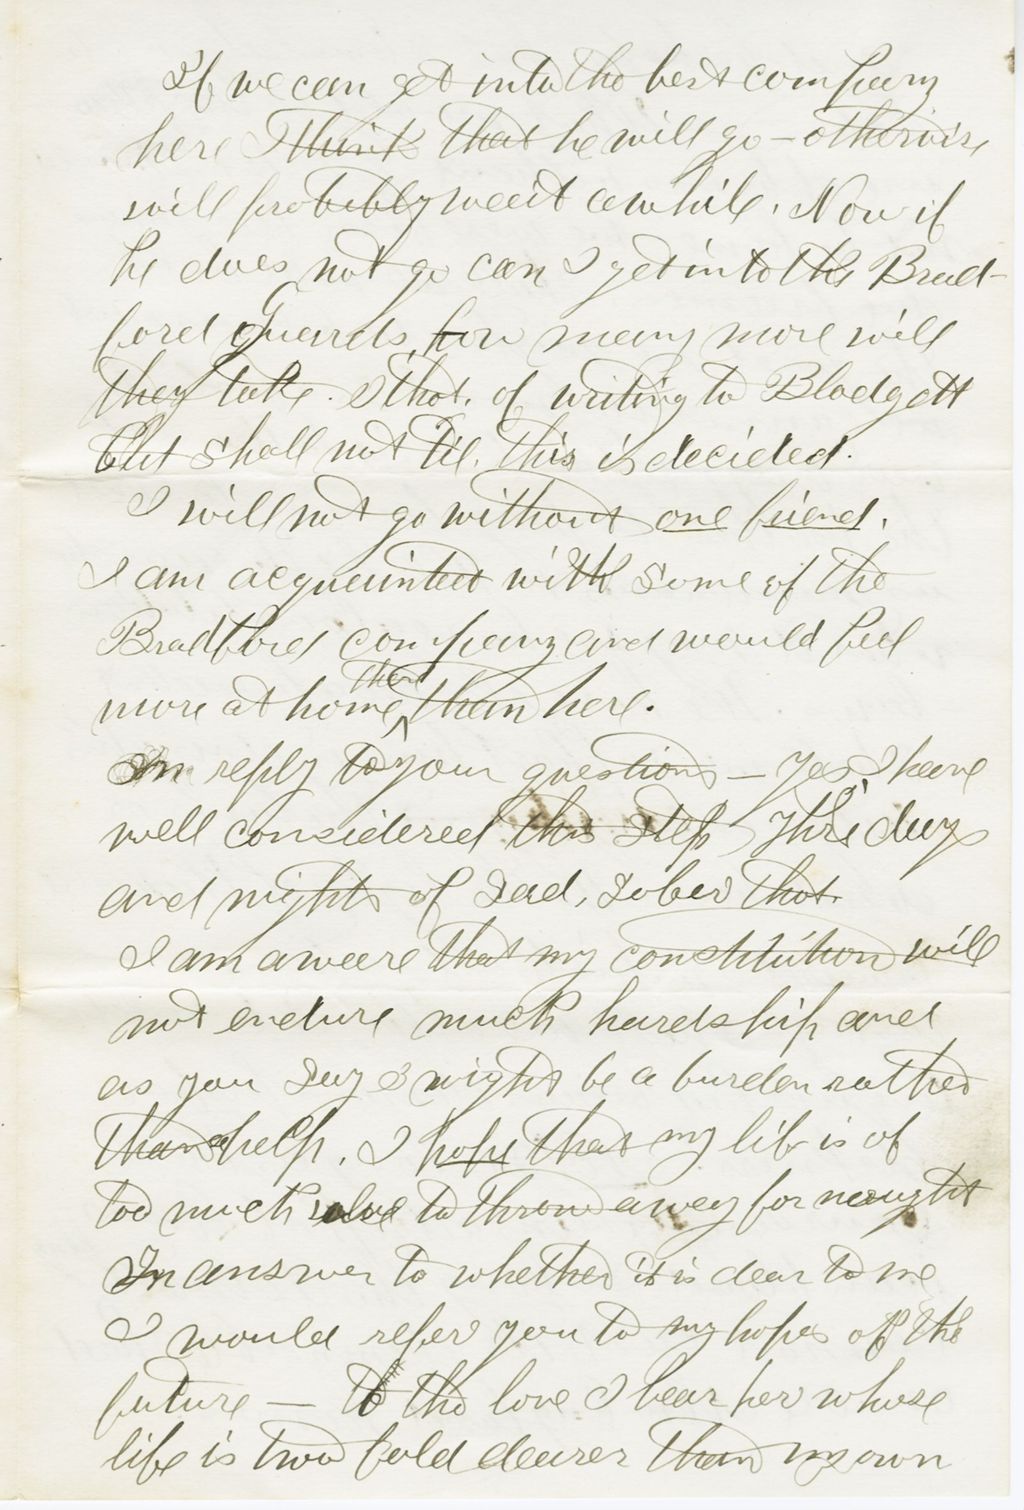 If we can get into the best company
here I think that he will go – otherwise
will probably wait awhile. Now if
he does not go can I get into the Brad-
ford Guards, how many more will
they take. I thot. of writing to Blodgett
but shall not 'til. this is decided.
I will not go without one friend.
I am acquainted with some of the
Bradford company and would feel
more at home there than here.
In reply to your questions – Yes, I have
well considered this step, three days
and nights of sad, sober thot.
I am aware that my constitution will
not endure much hardship and
as you say I might be a burden rather
than help. I hope that my life is of
too much value to throw away for naught
In answer to whether it is dear to me
I would refer you to my hopes of the
future – to the love I bear her whose
life is two fold dearer than my own